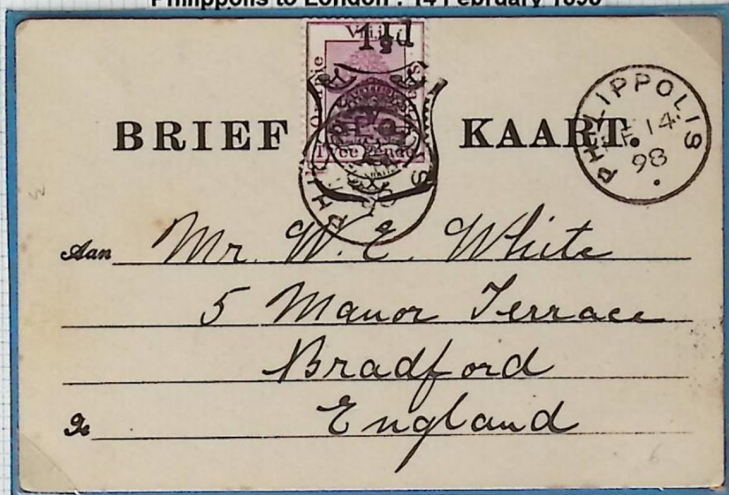 Philippolis to London : 14 February 1898
1½d
BRIEF KAART.
Twee Pence
PHILIPPOLIS
FE 14
98
Aan Mr. W. E. White
5 Manor Terrace
Bradford
Te England